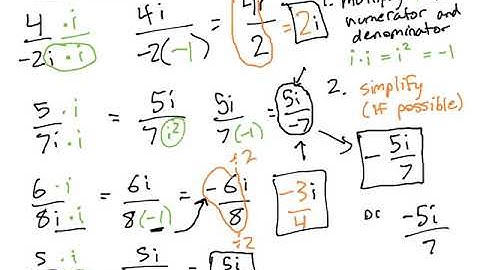 4 · i / -2i · i   4i / -2(-1)   = 4i / 2 = 2i
1. multiply
numerator and
denominator
i · i = i² = -1
5 · i / 7i · i = 5i / 7 i²   5i / 7(-1) = 5i / -7
2. simplify
(if possible)
- 5i / 7
÷2
6 · i / 8i · i = 6i / 8(-1) = -6i / 8   -3i / 4
÷2
-5i / 7
5 · i   = 5i   = 5i